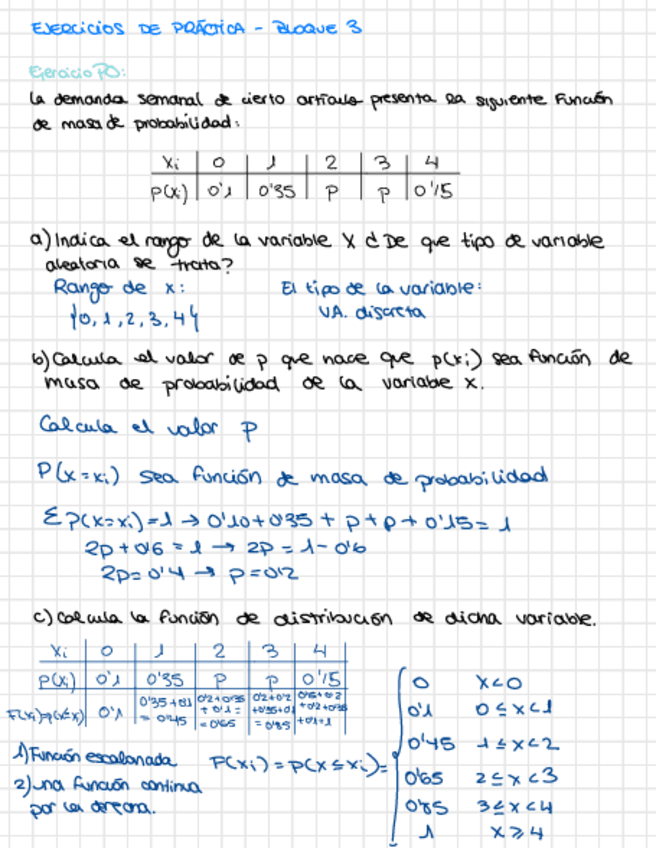 EJERCICIOS DE PRÁCTICA - BLOQUE 3
Ejercicio PO:
La demanda semanal de cierto artículo presenta la siguiente función
de masa de probabilidad:
Xi | 0 | 1 | 2 | 3 | 4
P(Xi) | 0'1 | 0'35 | P | P | 0'15
a) Indica el rango de la variable X ¿De que tipo de variable
aleatoria se trata?
Rango de x: El tipo de la variable:
{0, 1, 2, 3, 4} V.A. discreta
b) Calcula el valor de p que hace que p(xi) sea función de
masa de probabilidad de la variable x.
Calcula el valor P
P(x=xi) sea función de masa de probabilidad
Σp(x=xi)=1 → 0'10+0'35 + p+p+0'15=1
2p+0'6=1 → 2p=1-0'6
2p=0'4 → p=0'2
c) Calcula la función de distribución de dicha variable.
Xi | 0 | 1 | 2 | 3 | 4
P(Xi) | 0'1 | 0'35 | P | P | 0'15
F(xi)=p(x≤xi) | 0'1 | 0'35+0'1 = 0'45 | 0'2+0'35 + 0'1 = = 0'65 | 0'2+0'2 +0'35+0'1 = 0'85 | 0'15+0'2 +0'2+0'35 +0'1=1
1) Función escalonada
2) una función continua
por la derecha.
P(xi) = p(x≤xi)=
0 x<0
0'1 0≤x<1
0'45 1≤x<2
0'65 2≤x<3
0'85 3≤x<4
1 x≥4